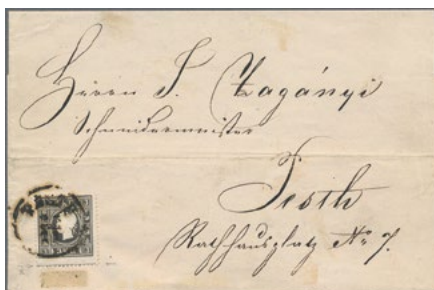 Herrn J. Zagányi
Schneidermeister
Pesth
Rathhausplatz No 7.